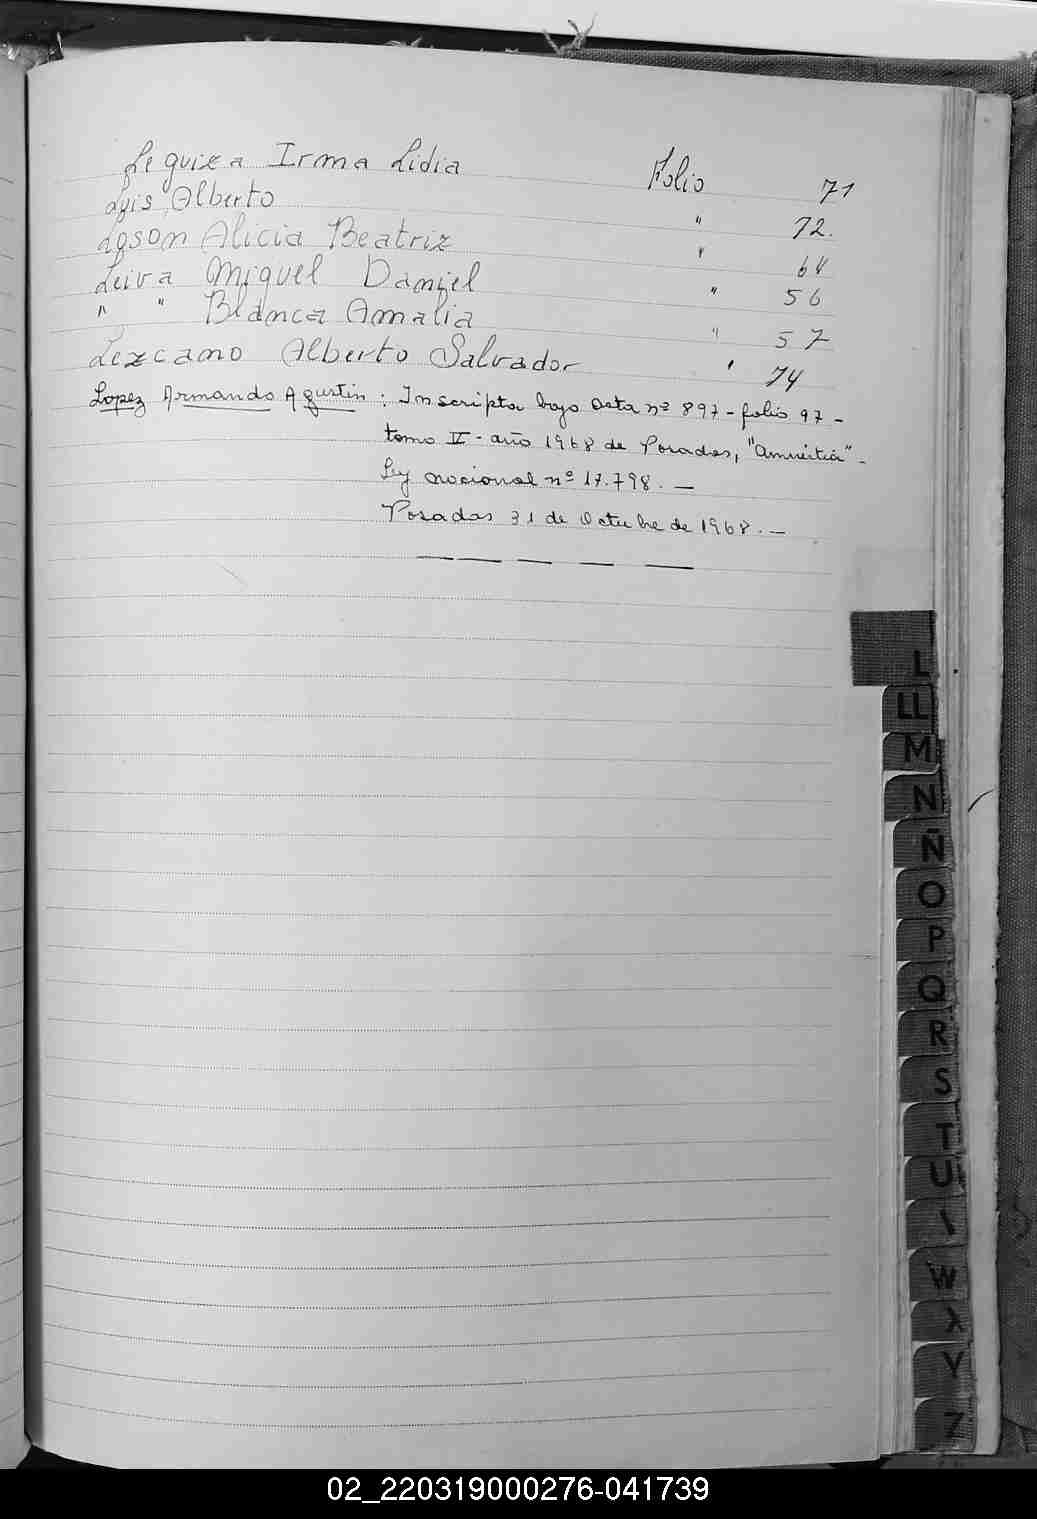 Leguiza Irma Lidia Folio 71
Luis Alberto " 72.
Lgson Alicia Beatriz " 64
Leiva Miguel Daniel " 56
" " Blanca Amalia " 57
Lezcano Alberto Salvador " 74
Lopez Armando Agustin : Inscripto bajo acta nº 897 - folio 97 -
tomo II - año 1968 de Posadas, "Amnistia" -
Ley nacional nº 17.798. —
Posadas 31 de Octubre de 1968. —
L
LL
M
N
Ñ
O
P
Q
R
S
T
U
W
X
Y
Z
02_220319000276-041739